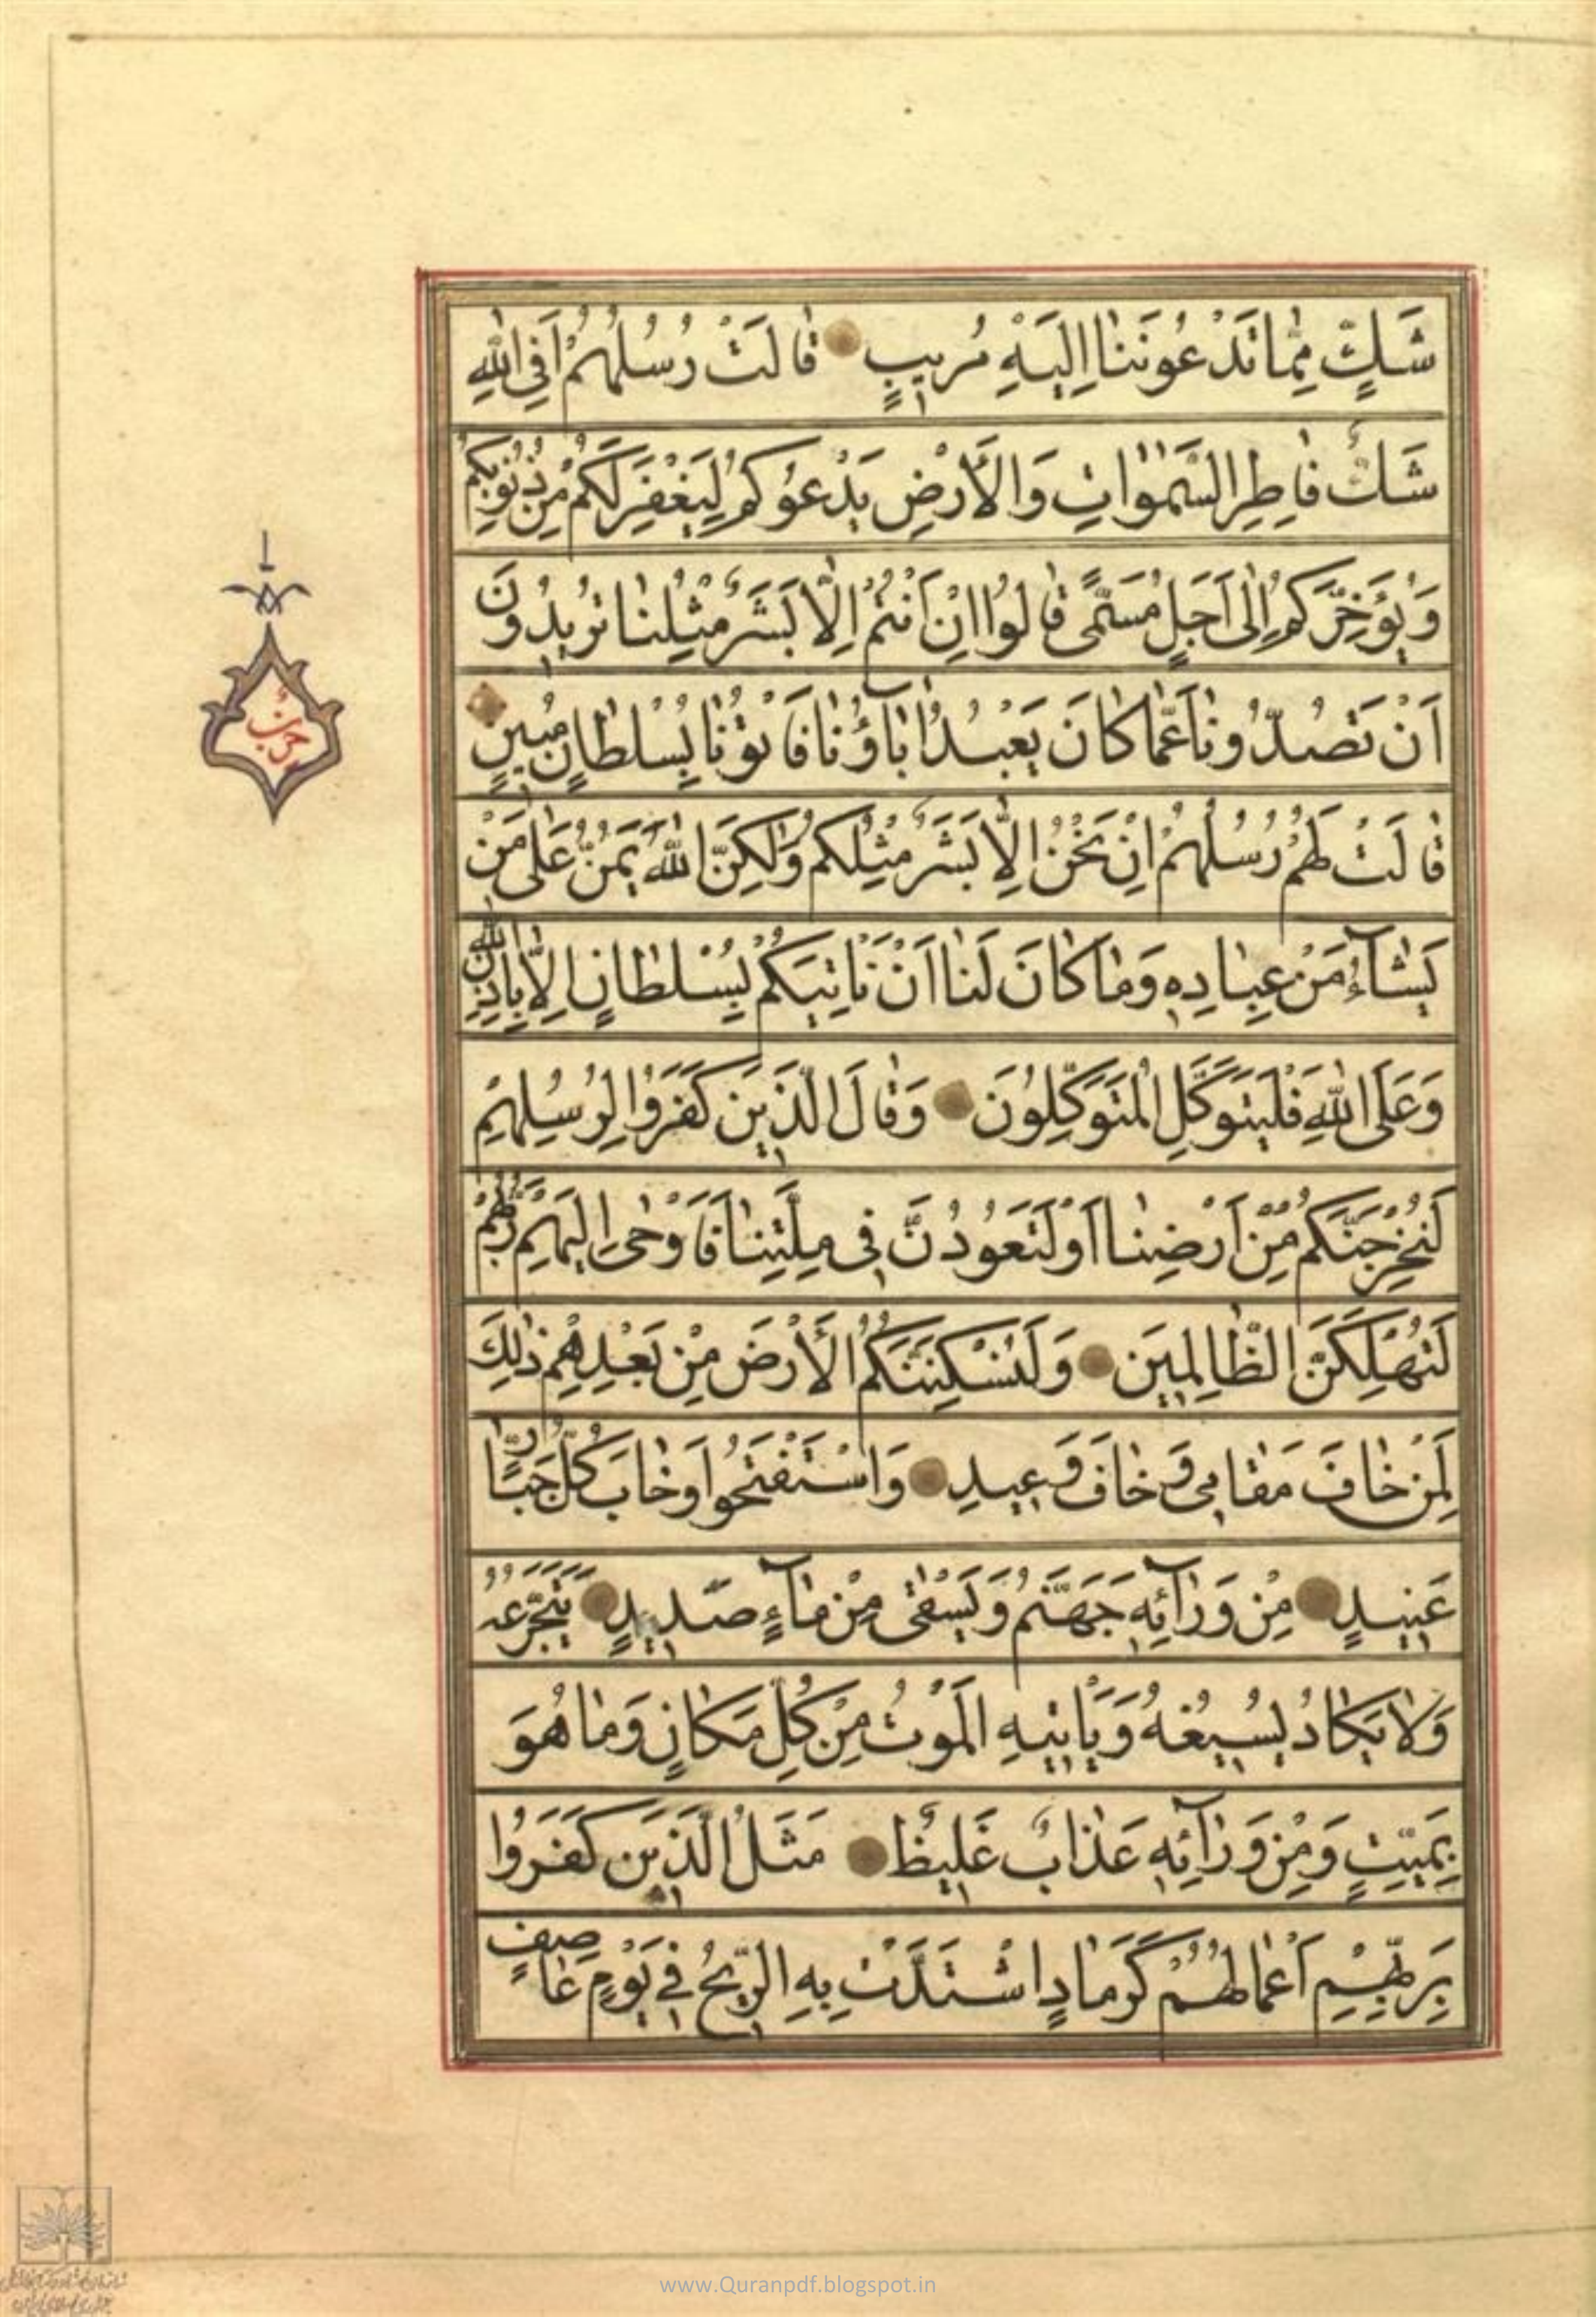 شَكٍّ مِمَّا تَدْعُونَنَا اِلَيْهِ مُرِيبٍ قَالَتْ رُسُلُهُمْ اَفِي اللّٰهِ
شَكٌّ فَاطِرِ السَّمٰوَاتِ وَالْاَرْضِ يَدْعُوكُمْ لِيَغْفِرَ لَكُمْ مِنْ ذُنُوبِكُمْ
وَيُؤَخِّرَكُمْ اِلٰى اَجَلٍ مُسَمًّى قَالُوا اِنْ اَنْتُمْ اِلَّا بَشَرٌ مِثْلُنَا تُرِيدُونَ
اَنْ تَصُدُّونَا عَمَّا كَانَ يَعْبُدُ اٰبَآؤُنَا فَأْتُونَا بِسُلْطَانٍ مُبِينٍ
قَالَتْ لَهُمْ رُسُلُهُمْ اِنْ نَحْنُ اِلَّا بَشَرٌ مِثْلُكُمْ وَلٰكِنَّ اللّٰهَ يَمُنُّ عَلٰى مَنْ
يَشَآءُ مِنْ عِبَادِهِ وَمَا كَانَ لَنَا اَنْ نَأْتِيَكُمْ بِسُلْطَانٍ اِلَّا بِاِذْنِ اللّٰهِ
وَعَلَى اللّٰهِ فَلْيَتَوَكَّلِ الْمُتَوَكِّلُونَ وَقَالَ الَّذِينَ كَفَرُوا لِرُسُلِهِمْ
لَنُخْرِجَنَّكُمْ مِنْ اَرْضِنَا اَوْ لَتَعُودُنَّ فِي مِلَّتِنَا فَاَوْحٰى اِلَيْهِمْ رَبُّهُمْ
لَنُهْلِكَنَّ الظَّالِمِينَ وَلَنُسْكِنَنَّكُمُ الْاَرْضَ مِنْ بَعْدِهِمْ ذٰلِكَ
لِمَنْ خَافَ مَقَامِي وَخَافَ وَعِيدِ وَاسْتَفْتَحُوا وَخَابَ كُلُّ جَبَّارٍ
عَنِيدٍ مِنْ وَرَآئِهِ جَهَنَّمُ وَيُسْقٰى مِنْ مَآءٍ صَدِيدٍ يَتَجَرَّعُهُ
وَلَا يَكَادُ يُسِيغُهُ وَيَأْتِيهِ الْمَوْتُ مِنْ كُلِّ مَكَانٍ وَمَا هُوَ
بِمَيِّتٍ وَمِنْ وَرَآئِهِ عَذَابٌ غَلِيظٌ مَثَلُ الَّذِينَ كَفَرُوا
بِرَبِّهِمْ اَعْمَالُهُمْ كَرَمَادٍ اشْتَدَّتْ بِهِ الرِّيحُ فِي يَوْمٍ عَاصِفٍ
حزب
www.Quranpdf.blogspot.in